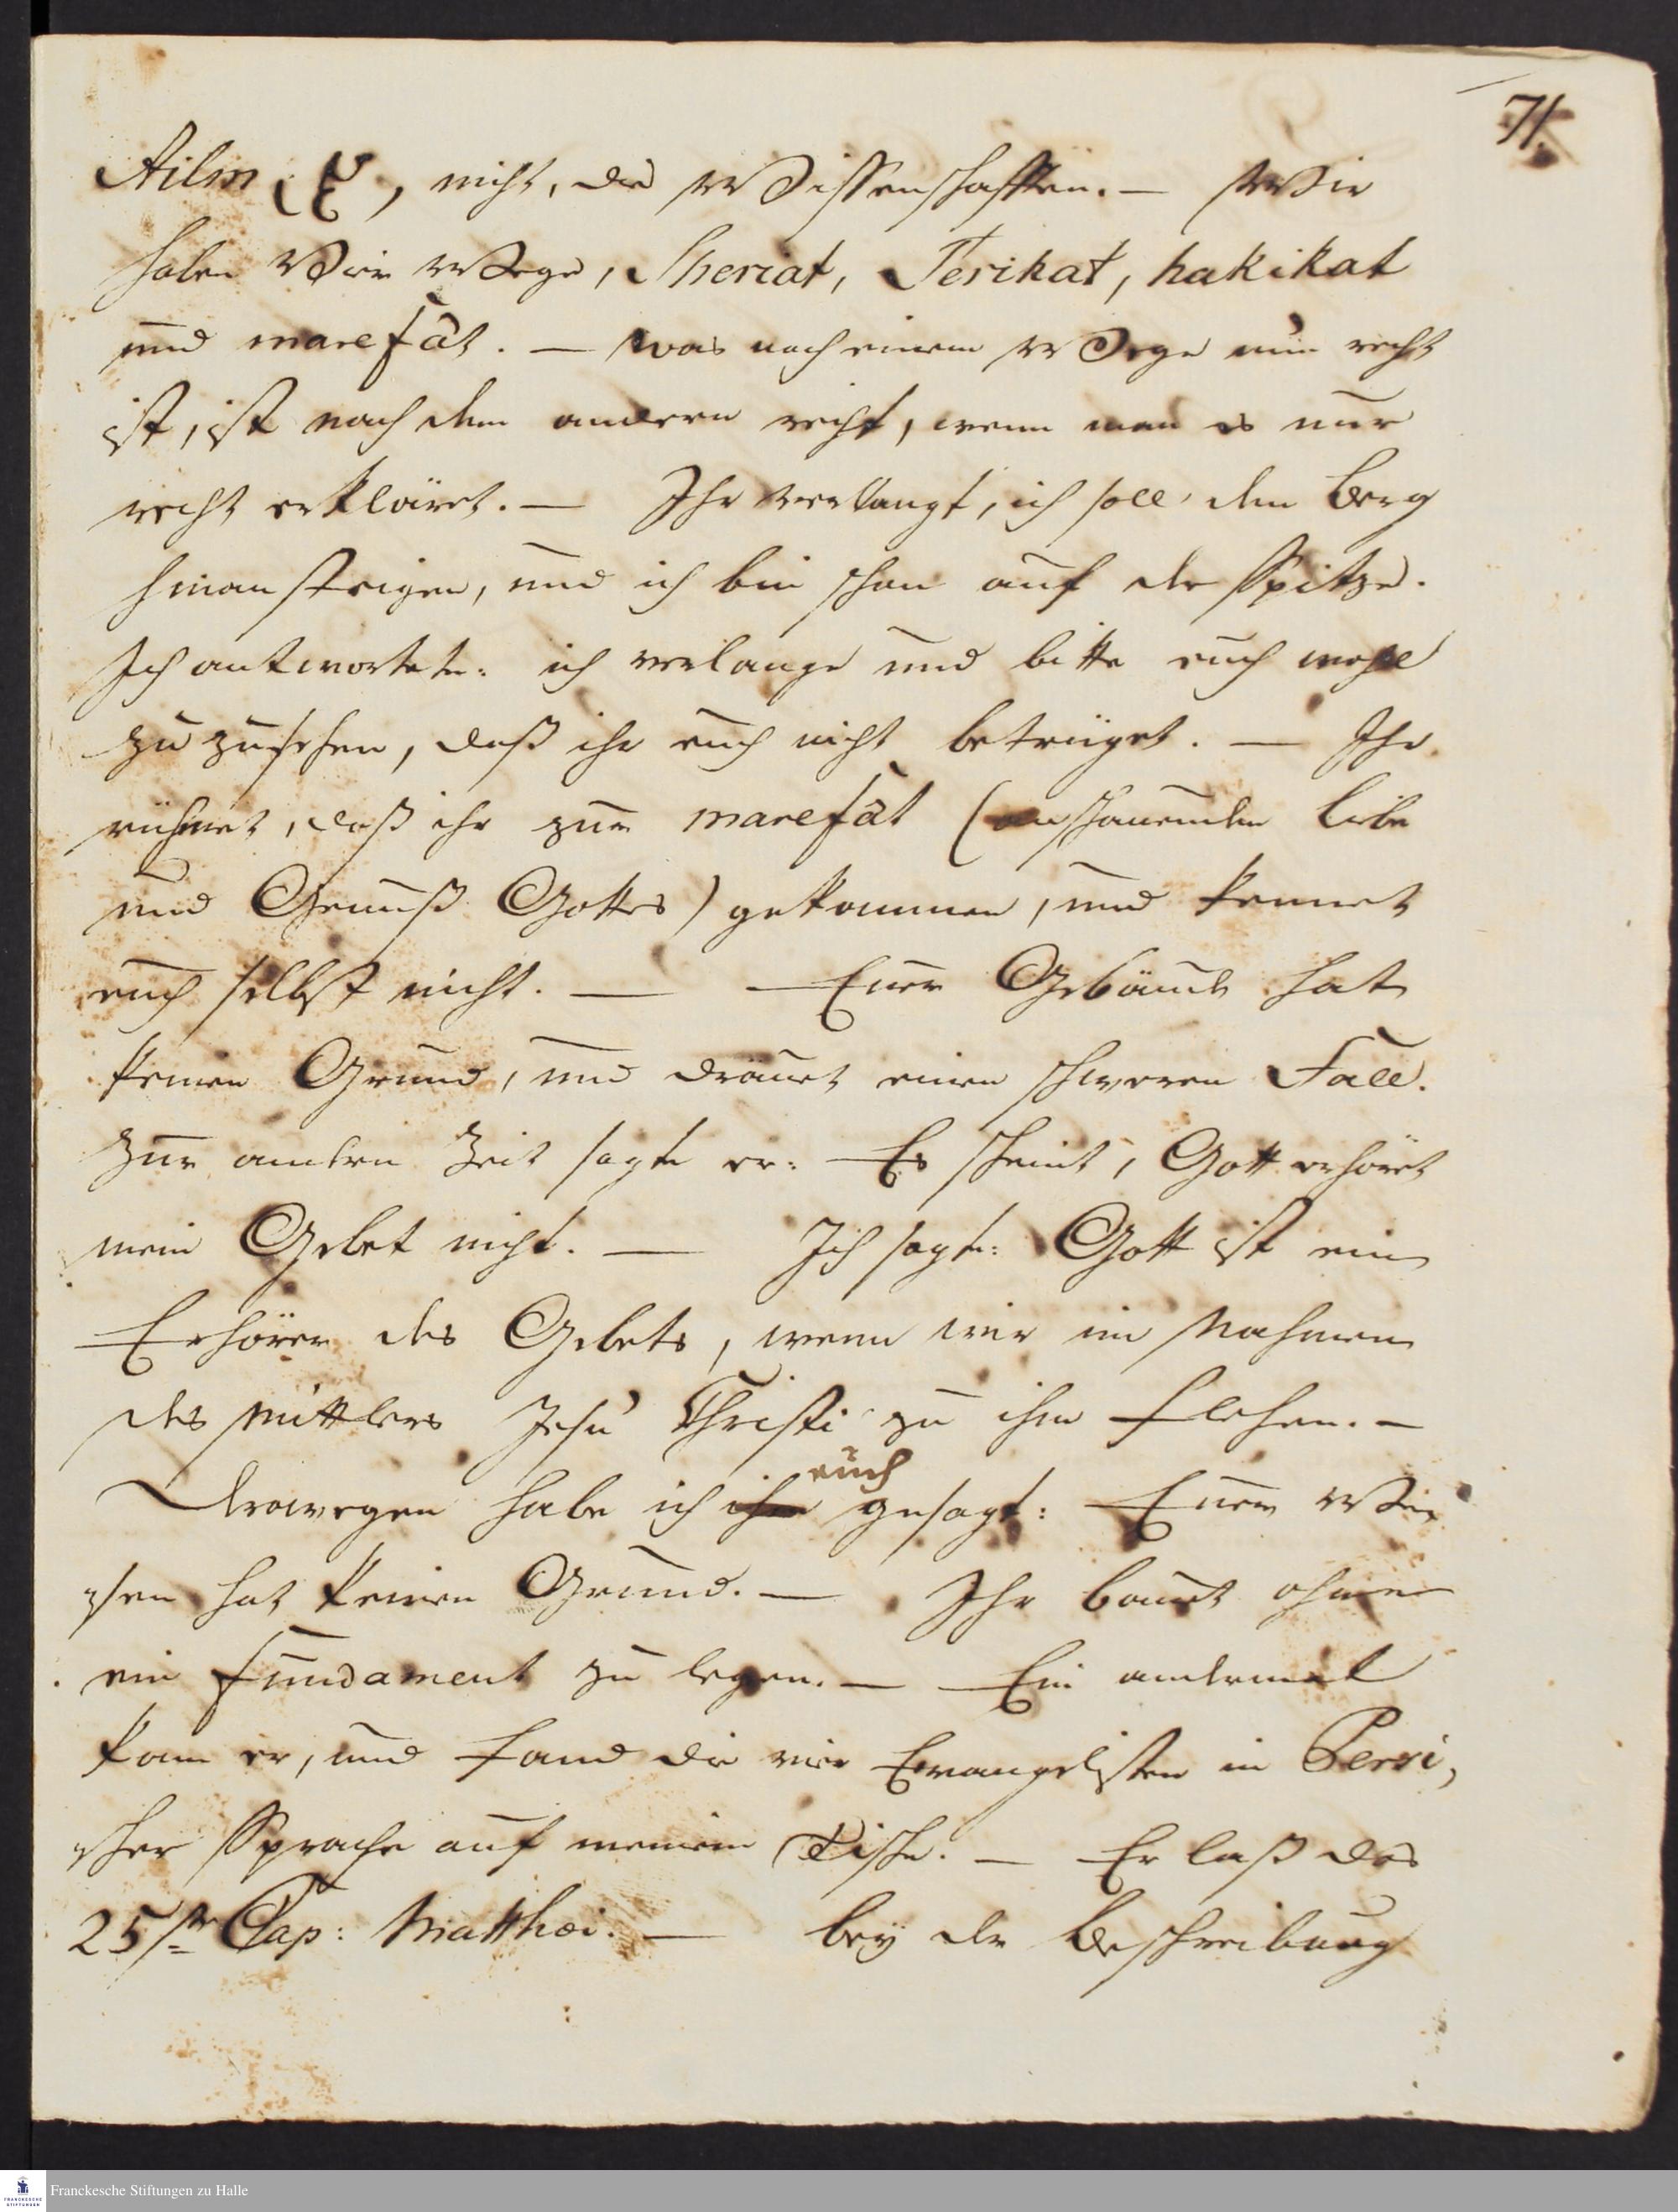 71.
Ailm, nicht, die Wissenschafften. — Wir
haben Vier Wege, Sheriat, Terikat, hakikat
und marefat. — was nach einem Wege nun recht
ist, ist nach dem andern recht, wenn man es nur
recht erkläret. — Ihr verlangt, ich soll den Berg
hinan steigen, und ich bin schon auf der Spitze.
Ich antwortete: ich verlange und bitte euch wohl
zu zusehen, daß ihr euch nicht betrüget. — Ihr
rühmet, daß ihr zur marefat (anschauenden Liebe
und Genuß Gottes) gekommen, und kennet
euch selbst nicht. — Euer Gebäude hat
keinen Grund, und dräuet einen schweren Fall.
Zur andern Zeit sagte er: Es scheint, Gott erhöret
mein Gebet nicht. — Ich sagte: Gott ist ein
Erhörer des Gebets, wenn wir im Nahmen
des Mittlers Jesu Christi zu ihm flehen. —
Derowegen habe ich euch gesagt: Euer Wis-
sen hat keinen Grund. — Ihr bauet ohne
ein Fundament zu legen. — Ein andermal
kam er, und fand die vier Evangelisten in Persi,
scher Sprache auf meinem Tische. — Er laß das
25ste Cap: Matthæi. — bey der Beschreibung
Franckesche Stiftungen zu Halle